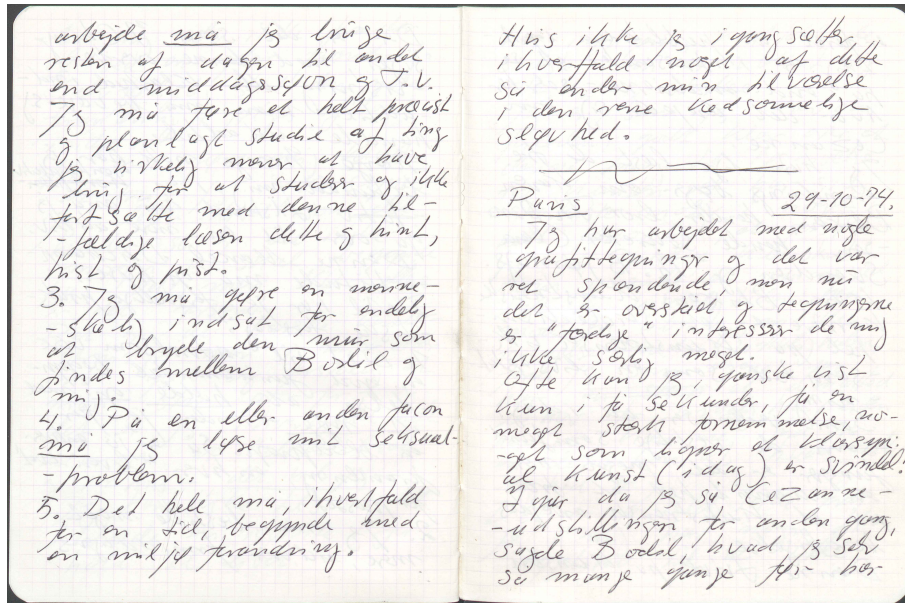 arbejde må jeg bruge
resten af dagen til andet
end middagssøvn og T.V.
Jeg må føre et helt præcist
og planlagt studie af ting
jeg virkelig mener at have
brug for at studere og ikke
fortsætte med denne til-
-fældige læsen dette og hint,
hist og pist.
3. Jeg må gøre en menne-
-skelig indsat for endelig
at bryde den mur som
findes mellem Bodil og
mig.
4. På en eller anden facon
må jeg løse mit seksual-
-problem.
5. Det hele må, ihvertfald
for en tid, begynde med
en miljø forandring.
Hvis ikke jeg igangsætter
ihvertfald noget af dette
så ender min tilværelse
i den rene kedsommelige
sløvhed.
Paris 29-10-74.
Jeg har arbejdet med nogle
grafittegninger og det var
ret spændende, men nu
det er overstået og tegningerne
er "færdige" interesserer de mig
ikke særlig meget.
Ofte kan jeg, ganske vist
kun i få sekunder, få en
meget stærk fornemmelse, no-
-get som ligner et klarsyn:
al kunst (idag) er svindel!
Igår da jeg så Cezanne-
-udstillingen for anden gang,
sagde Bodil, hvad jeg selv
så mange gange før har